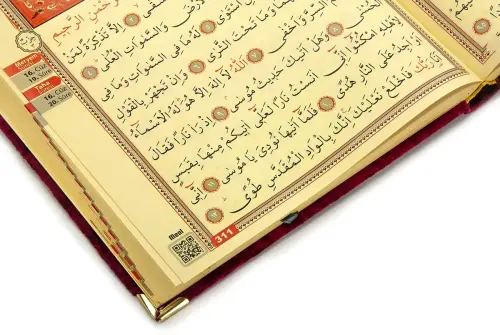 حْمٰنِ الرَّحِيمِ
اِلَّا تَذْكِرَةً لِمَنْ
رْضَ وَالسَّمٰوَاتِ الْعُلٰى
اسْتَوٰى لَهُ مَا فِى السَّمٰوَاتِ وَمَا فِى
وَمَا بَيْنَهُمَا وَمَا تَحْتَ الثَّرٰى وَاِنْ تَجْهَرْ بِالْقَوْلِ
السِّرَّ وَاَخْفٰى اَللّٰهُ لَا اِلٰهَ اِلَّا هُوَ لَهُ الْاَسْمَاءُ
وَهَلْ اَتٰيكَ حَدِيثُ مُوسٰى اِذْ رَاٰ نَارًا فَقَالَ
لِاَهْلِهِ امْكُثُوا اِنِّى اٰنَسْتُ نَارًا لَعَلِّى اٰتِيكُمْ مِنْهَا بِقَبَسٍ
اَوْ اَجِدُ عَلَى النَّارِ هُدًى فَلَمَّا اَتٰيهَا نُودِىَ يَا مُوسٰى اِنِّى
اَنَا رَبُّكَ فَاخْلَعْ نَعْلَيْكَ اِنَّكَ بِالْوَادِ الْمُقَدَّسِ طُوًى
Meryem
16. Cüz
19. Sûre
Taha
16. Cüz
20. Sûre
Meal
311